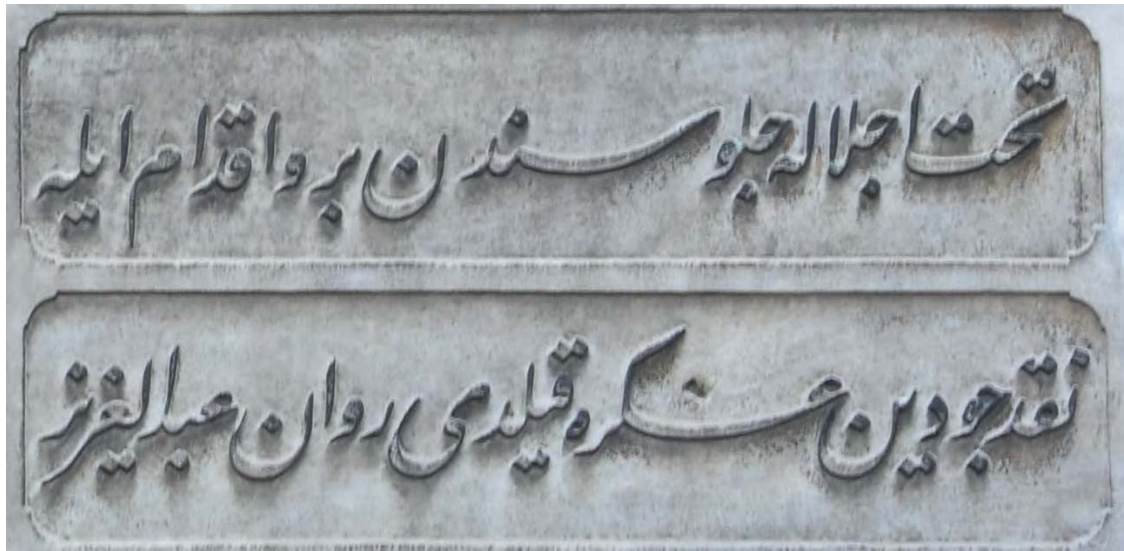 تخت اجلاله جلوسندن برو اقدام ايله
نقد جودين عسكره قيلدى روان عبد العزيز